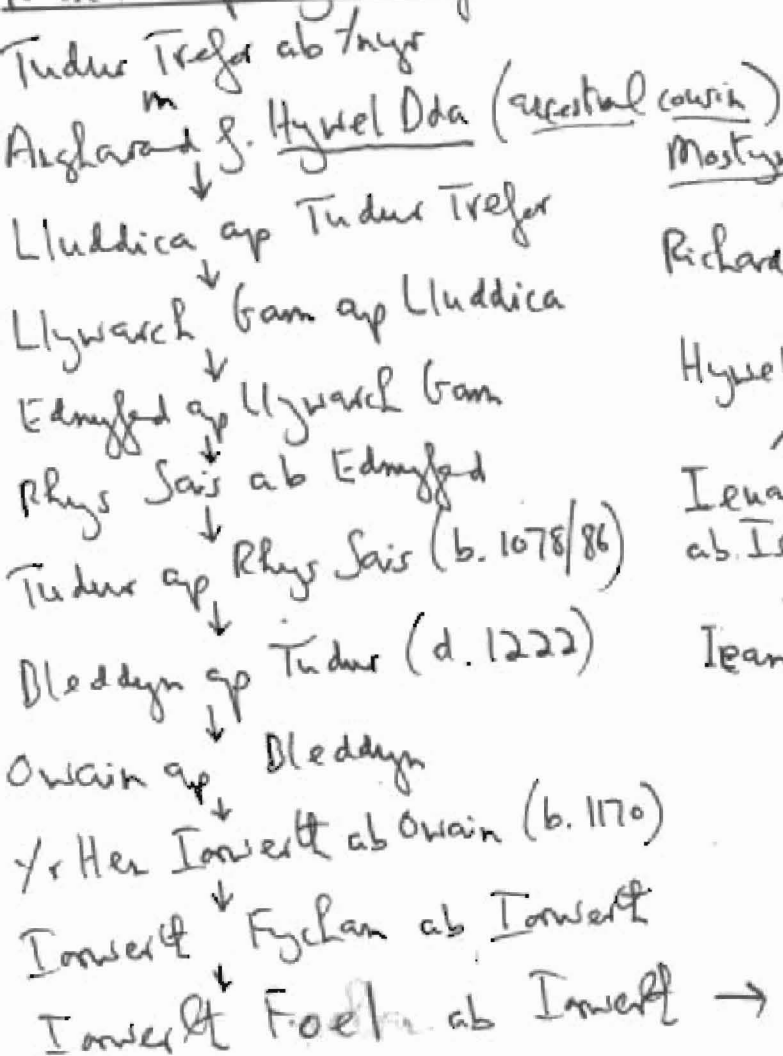 Tudur Trefor ab Ynyr
m
Angharad f. Hywel Dda (ancestral cousin)
↓
Lluddica ap Tudur Trefor
↓
Llywarch Gam ap Lluddica
↓
Ednyfed ap Llywarch Gam
↓
Rhys Sais ab Ednyfed
↓
Tudur ap Rhys Sais (b. 1078/86)
↓
Bleddyn ap Tudur (d. 1222)
↓
Owain ap Bleddyn
↓
Yr Hen Iorwerth ab Owain (b. 1170)
↓
Iorwerth Fychan ab Iorwerth
↓
Iorwerth Foel ab Iorwerth →
Mostyn
Richard
Hywel
Ieua
ab Is
Iean